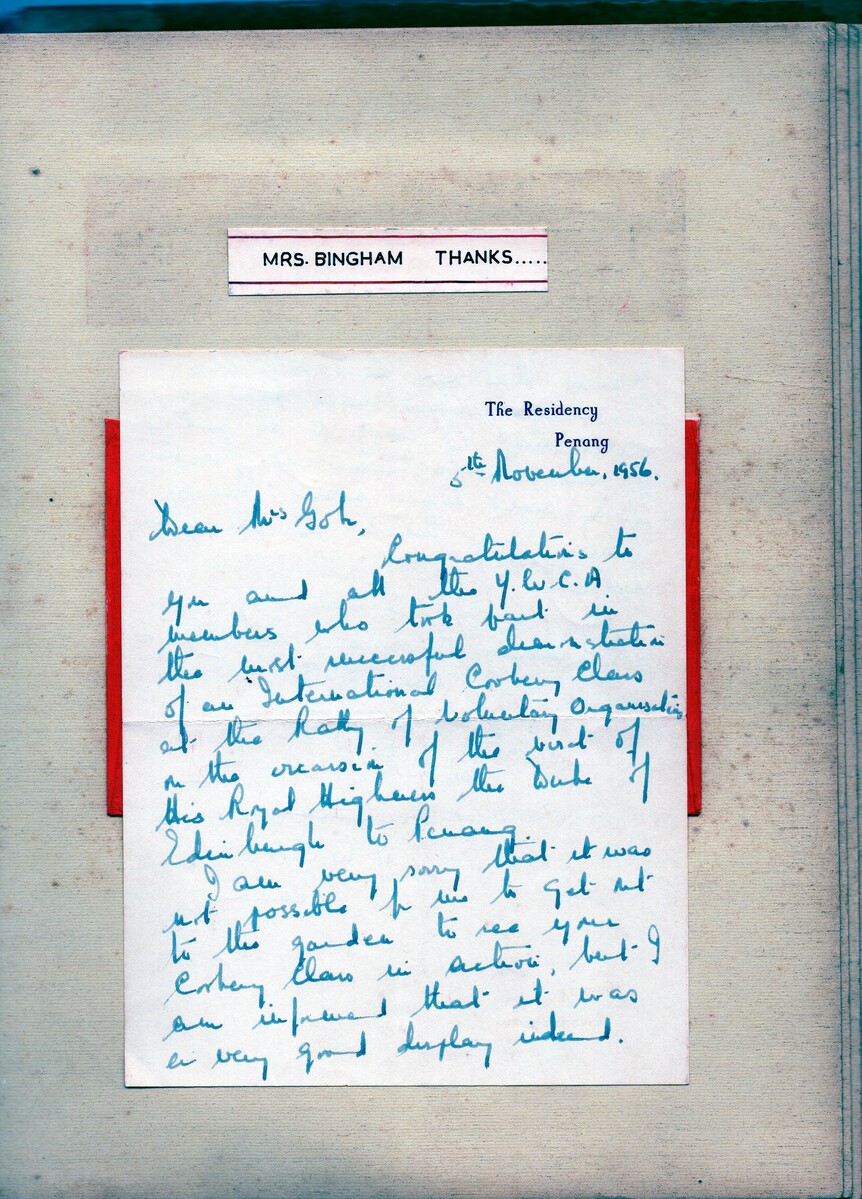 MRS. BINGHAM THANKS.....
The Residency
Penang
5th November, 1956.
Dear Mrs Goh,
Congratulations to
you and all the Y.W.C.A
members who took part in
the most successful demonstration
of an International Cookery Class
at the Rally of Voluntary Organisations
on the occasion of the visit of
His Royal Highness the Duke of
Edinburgh to Penang.
I am very sorry that it was
not possible for me to get out
to the garden to see your
Cookery Class in action, but I
am informed that it was
a very good display indeed.